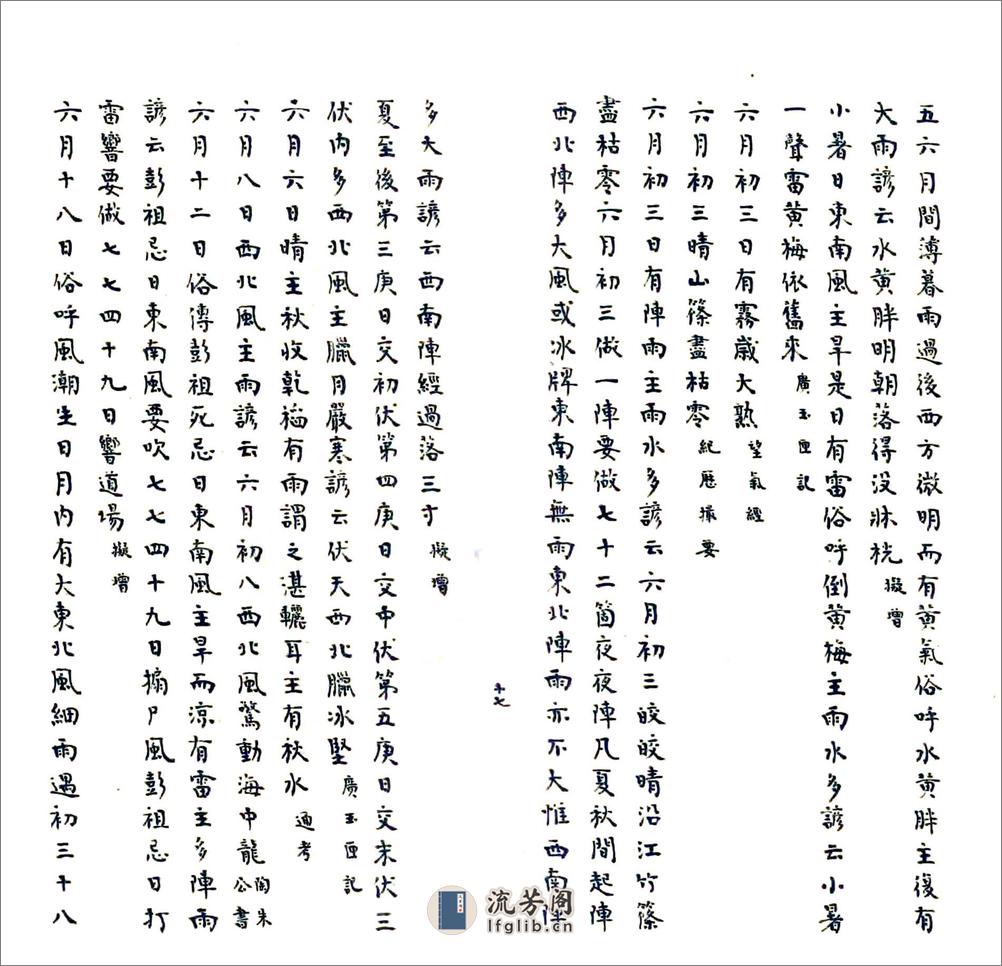 五六月間薄暮雨過後西方微明而有黃氣俗呼水黃胖主復有
大雨諺云水黃胖明朝落得没牀桄擬增
小暑日東南風主旱是日有雷俗呼倒黃梅主雨水多諺云小暑
一聲雷黃梅依舊來廣玉匣記
六月初三日有霧歲大熟望氣經
六月初三晴山篠盡枯零紀歷撮要
六月初三日有陣雨主雨水多諺云六月初三皎皎晴沿江竹篠
盡枯零六月初三做一陣要做七十二箇夜夜陣凡夏秋間起陣
西北陣多大風或冰牌東南陣無雨東北陣雨亦不大惟西南陣
十七
多大雨諺云西南陣經過落三寸擬增
夏至後第三庚日交初伏第四庚日交中伏第五庚日交末伏三
伏内多西北風主臘月嚴寒諺云伏天西北臘冰堅廣玉匣記
六月六日晴主秋收乾稻有雨謂之湛轣耳主有秋水通考
六月八日西北風主雨諺云六月初八西北風驚動海中龍陶朱公書
六月十二日俗傳彭祖死忌日東南風主旱而涼有雷主多陣雨
諺云彭祖忌日東南風要吹七七四十九日搧尸風彭祖忌日打
雷響要做七七四十九日響道場擬增
六月十八日俗呼風潮生日月内有大東北風細雨遇初三十八
流芳阁
lfglib.cn